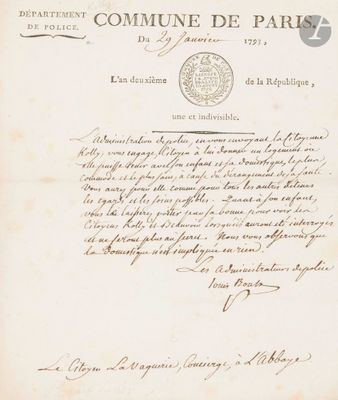 DÉPARTEMENT
DE POLICE.
COMMUNE DE PARIS.
Du 29 Janvier 1793,
L'an deuxième de la République,
une et indivisible.
L'administration de police, en vous envoyant la Citoyenne
Kolly, vous engage Citoyen à lui donner un logement où
elle puisse tenir avec son enfant et sa domestique, le plus
commode et le plus sain, à cause du dérangement de sa santé.
Vous aurez pour elle comme pour tous les autres détenus
les égards et les soins possibles. Quant à son enfant,
vous le laisserez porter par sa bonne pour voir les
Citoyens Kolly et Beauvoir lorsqu'ils auront été interrogés
et ne seront plus au secret. Nous vous observons que
la domestique n'est impliquée en rien.
Les Administrateurs de police
Louis
Le Citoyen LaVaquerie, Concierge, à L'Abbaye